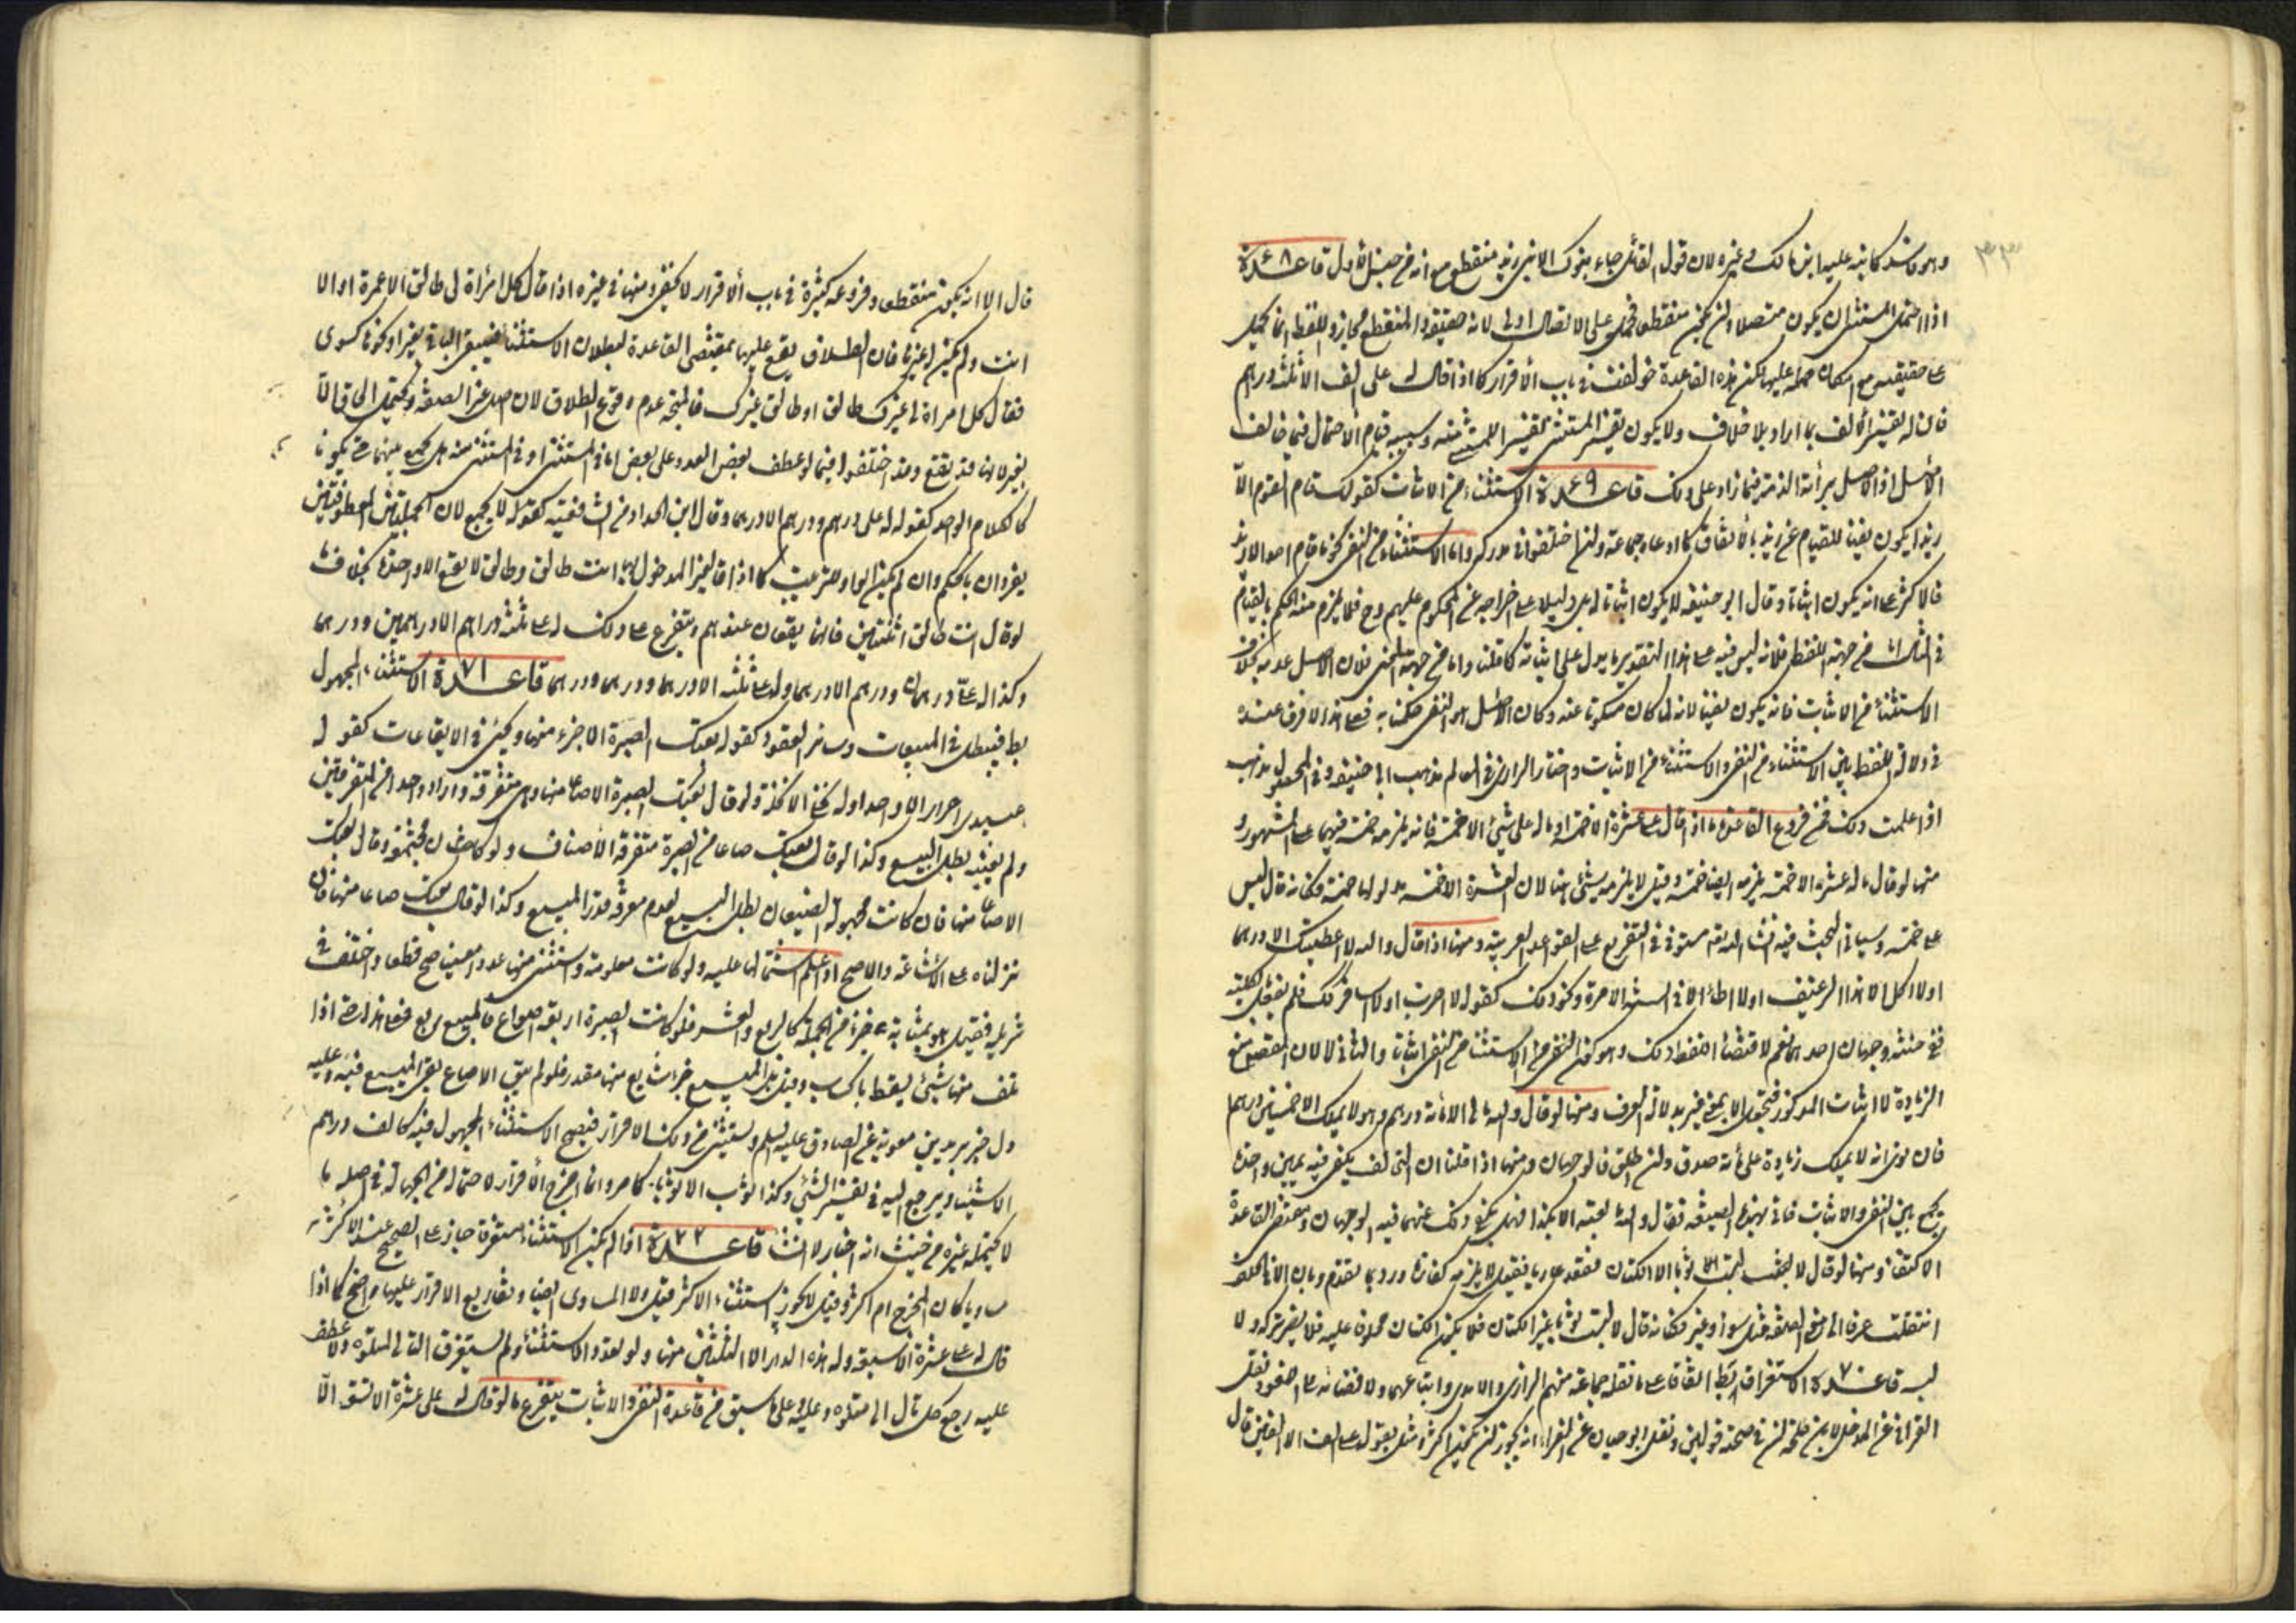 ٣٣
وهو فاسد كما نبه عليه ابن مالك وغيره لان قول القائل جاء بنوك الا بنى زيد منقطع مع انه من جنس الاول قاعدة ٤٨
اذا احتمل المستثنى ان يكون متصلا وان يكون منقطعا فحمله على الاتصال اولى لانه حقيقة والمنقطع مجاز واللفظ انما يحمل
على حقيقته مع امكان حمله عليها لكن هذه القاعدة خولفت في باب الأقرار كما اذا قال له على الف الا ثلثة دراهم
فان له تفسير الألف بما اراد بلا خلاف ولا يكون تفسير المستثنى تفسيرا للمستثنى منه وسببه قيام الأحتمال فيما خالف
الأصل اذ الاصل براءة الذمة فيما زاد على ذلك قاعدة ٤٩ الاستثناء من الاثبات كقولك قام القوم الّا
زيدا يكون نفيا للقيام عن زيد بالأتفاق كما ادعاه جماعة وان اختلفوا في مدركه واما الاستثناء من النفي نحو ما قام احد الا زيد
فالاكثر على انه يكون اثباتا وقال ابو حنيفة لا يكون اثباتا له بل دليلا على اخراجه عن المحكوم عليهم وح فلا يلزم منه الحكم بالقيام
اما من جهة اللفظ فلانه ليس فيه على هذا التقدير ما يدل على اثباته كما قلنا واما من جهة المعنى فلان الاصل عدمه بخلاف
الاستثناء من الاثبات فانه يكون نفيا لانه لما كان مسكوتا عنه وكان الأصل هو النفي حكمنا به فعلى هذا لا فرق عنده
في دلالة اللفظ بين الاستثناء من النفي والاستثناء من الاثبات واختار الرازي في المعالم مذهب ابى حنيفة وفي المحصول مذهب
اذا علمت ذلك فمن فروع القاعدة ما اذا قال له على عشرة الا خمسة او ما له على شئ الا خمسة فانه يلزمه خمسة فيهما على المشهور و
منها لو قال ما له عشرة الا خمسة يلزمه ايضا خمسة وقيل لا يلزمه شئ هنا لان العشرة الا خمسة مدلولها خمسة فكانه قال ليس
على خمسة وسياتى البحث فيه انشاء الله تعالى مستوفى في التفريع على القواعد العربية ومنها اذا قال والله لا اعطيتك الا درهما
اولا اكل الا هذا الرغيف اولا اطأ الا في السنة الا مرة ونحو ذلك كقوله لا اضرب اولا اسافر فلم يفعل بالكلية
ففي حنثه وجهان احدهما نعم لاقتضاء اللفظ ذلك وهو كون الاستثناء من النفي اثباتا والثاني لا لان المقصود منع
الزيادة لا اثبات المذكور
فان نوى انه لا يملك زيادة على مائة صدق وان اطلق فالوجهان ومنها اذا قلنا ان الحالف يكفى فيه يمين واحدة
يجمع بين النفي والاثبات فاتى بهذه الصيغة فقال والله ما بعته الا بكذا فهل يكفي ذلك عنهما فيه الوجهان ومقتضى القاعدة
الاكتفاء ومنها لو قال لا لبست ثوبا الا الكتان فقعد عاريا فقيل لا يلزمه كفارة ورد بما تقدم وبان الا في الحلف
انتقلت عرفا الى معنى الصفة مثل سوى وغير فكانه قال لا لبست ثوبا غير الكتان فلا يكون الكتان محلوفا عليه فلا يضر تركه ولا
لبسه قاعدة ٧٠ الاستثناء المستغرق باطل اتفاقا على ما نقله جماعة منهم الرازي والامدي واتباعهما
القرافي عن المدخل لابن طلحة ان في صحته قولين ونقل ابو حيان عن الفراء انه يجوز ان يكون اكثر ومثل بقوله على الف الا الفين قال
قال الا انه يكون منقطعا وفروعه كثيرة في باب الأقرار لا تخفى ومنها في غيره اذا قال كل امرأة لى طالق الا عمرة او الا
انت ولم يكن له غيرها فان الطلاق يقع عليها بمقتضى القاعدة لبطلان الاستثناء
فقال كل امراة لى غيرك طالق او طالق غيرك فالمتجه عدم وقوع الطلاق لان اصل غير الصفة
بغير لانها قد تقع وقد اختلفوا فيما لو عطف بعض العدد على بعض اما في المستثنى او في المستثنى منه هل يجمع بينهما حتى يكونا
كالكلام الواحد كقوله له على درهم ودرهم الا درهما وقال ابن الحداد من الشافعية كقوله لا يجمع لان الجملتين المعطوفتين
يفردان بالحكم وان لم يكن الواو للترتيب كما اذا قال لغير المدخول بها انت طالق وطالق لا يقع الا واحدة بخلاف ما
لو قال انت طالق اثنتين فانهما يقعان عندهم ويتفرع على ذلك له على ثلثة دراهم الا درهمين ودرهما
وكذا له على درهمان ودرهم الا درهما وله على ثلثة الا درهما ودرهما ودرهما قاعدة ٧١ الاستثناء المجهول
باطل فيبطل في المبيعات وسائر العقود كقوله بعتك الصبرة الا جزء منها وكذا في الايقاعات كقوله
عبيدي احرار الا واحدا ولو قال بعتك الصبرة الا صاعا منها وهي متفرقة واراد واحدا من المتفرقين
ولم يعينه بطل البيع وكذا لو قال بعتك صاعا من الصبرة متفرقة الأصناف ولو كانت مجتمعة وقال بعتك
الا صاعا منها فان كانت مجهولة الصيعان بطل البيع لعدم معرفة قدر المبيع وكذا لو قال بعتك صاعا منها فان
نزلناه على الاشاعة والاصح اذا علم اشتمالها عليه ولو كانت معلومة واستثنى منها عددا معينا صح قطعا واختلف في
تنزيله فقيل هو بمثابة جزء من الجملة كالربع والعشر فلو كانت الصبرة اربعة اصواع فالمبيع ربع فعلى هذا اذا
تلف منها شئ يسقط بالحساب وقيل بل المبيع جزء شايع منها مقدر فلو لم يبق الا صاع بقى المبيع فيه وعليه
دل خبر بريد بن معوية عن الصادق عليه السلم ويستثنى من ذلك الاقرار فيصح الاستثناء المجهول فيه كالف درهم
الا شيئا ويرجع اليه في تفسير الشئ وكذا الثوب الا ثوبا كما مر وانما خرج الأقرار لاحتماله من الجهالة في اصله ما
لا يحتمله غيره من حيث انه اخبار لا انشاء قاعدة ٧٢ اذا لم يكن الاستثناء مستغرقا جاز على الصحيح عند الاكثر
مساويا كان المخرج ام اكثر وقيل لا يجوز استثناء الاكثر قيل ولا المساوي ايضا وتفاريع الاقرار عليها واضح كما اذا
قال له على عشرة الا سبعة وله هذه الدار الا الثلثين منها ولو تعدد الاستثناء ولم يستغرق التالى المتلو ولا عطف
عليه رجع كل تال الى متلوه وعليه وعلى ما سبق من قاعدة النفي والاثبات يتفرع ما لو قال له على عشرة الا تسعة الّا